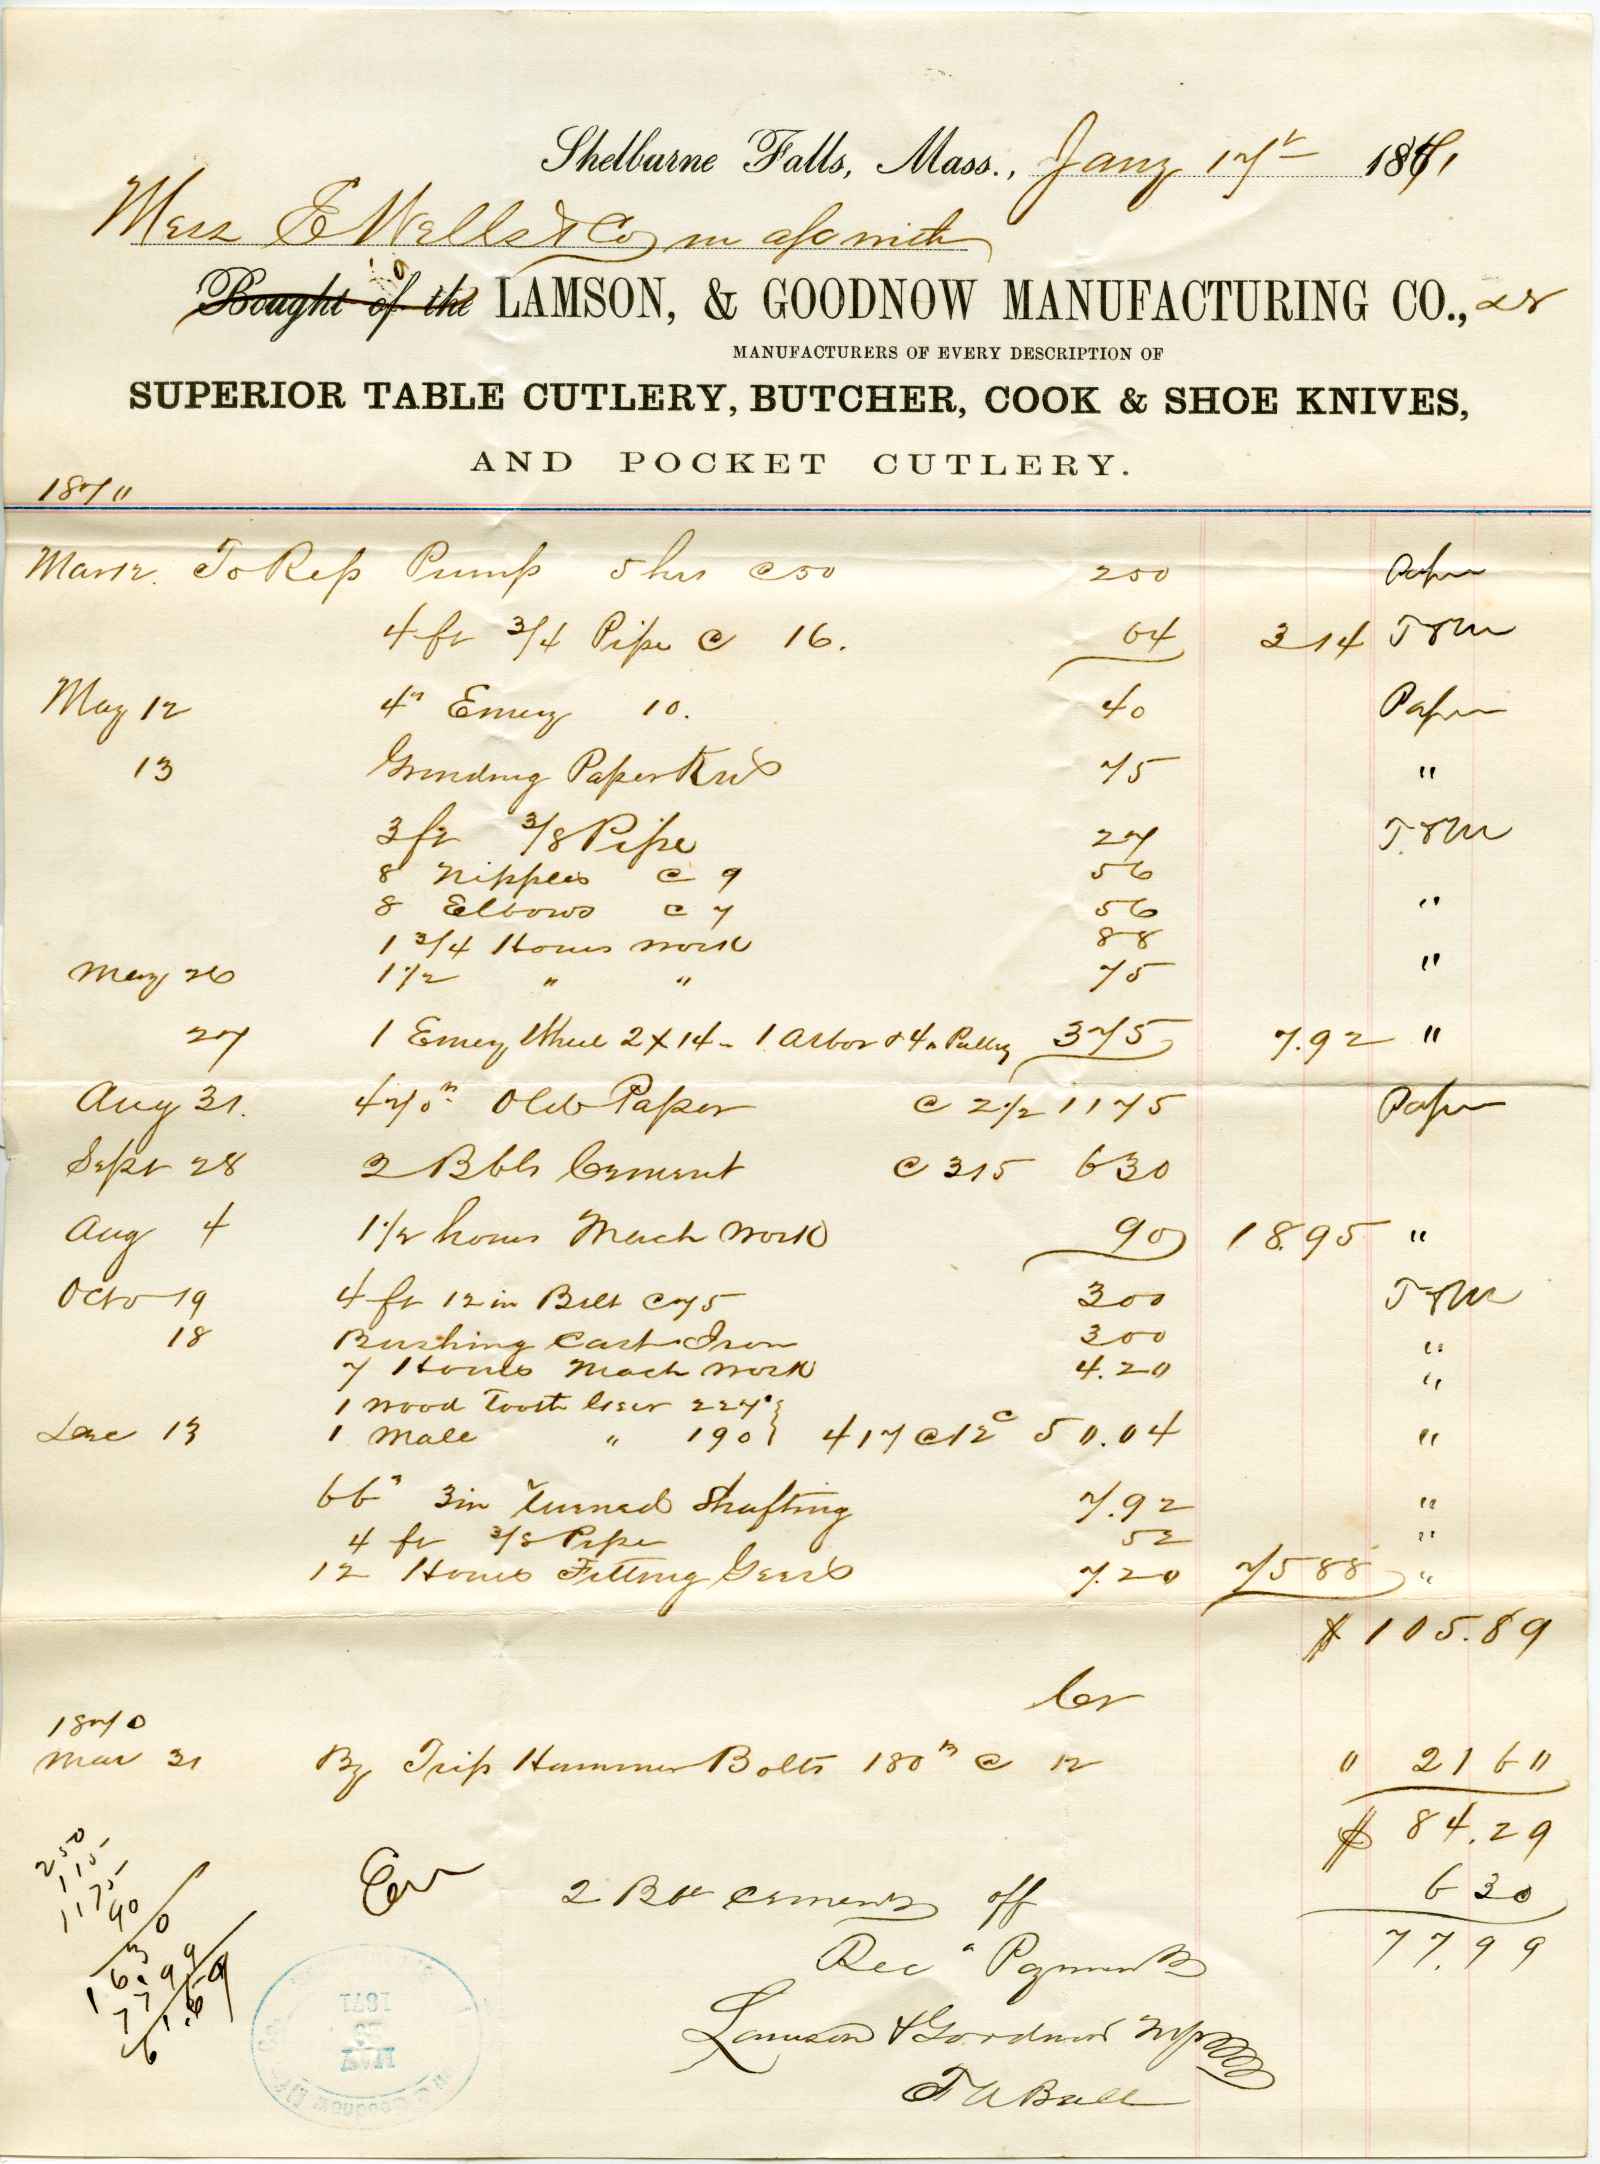 Shelburne Falls, Mass., Jany 17th 1871
Mess E Wells & Co in a/c with
Bought of the LAMSON, & GOODNOW MANUFACTURING CO., Dr
MANUFACTURERS OF EVERY DESCRIPTION OF
SUPERIOR TABLE CUTLERY, BUTCHER, COOK & SHOE KNIVES,
AND POCKET CUTLERY.
1870
Mar 12. To Rep Pump 5 hrs @ 50 250 Paper
4 ft 3/4 Pipe @ 16. 64 314 T & M
May 12 4" Emery 10. 40 Paper
13 Grinding Paper Knife 75 "
3 ft 3/8 Pipe 27 T & M
8 Nipples @ 9 56
8 Elbows @ 7 56 "
1 3/4 Hours work 88
May 26 1 1/2 " " 75 "
27 1 Emery Wheel 2 x 14 - 1 Arbor & 4 in Pulley 375 7.92 "
Aug 31. 470 lb Old Paper @ 2 1/2 1175 Paper
Sept 28 2 Bbls Cement @ 315 630
Aug 4 1 1/2 hours Mach Work 90 18.95 "
Octo 19 4 ft 12 in Belt @ 75 300 T & M
18 Bushing Cast Iron 300 "
7 Hours Mach Work 4.20 "
1 Wood Tooth Gear 227
Dec 13 1 Male " 190 } 417 @ 12c 50.04 "
66" 3 in Turned Shafting 7.92 "
4 ft 3/8 Pipe 52 "
12 Hours Fitting Gears 7.20 75 88 "
$ 105.89
Cr
1870
Mar 31 By Trip Hammer Bolts 180 lb @ 12 " 21 60
$ 84.29
Err 2 Bbl Cement off 6 30
77.99
Rec d Payment
Lamson & Goodnow Mfg Co
F A Ball
250
115
1175
90
16 30
77.99
61.69
MAY
1871